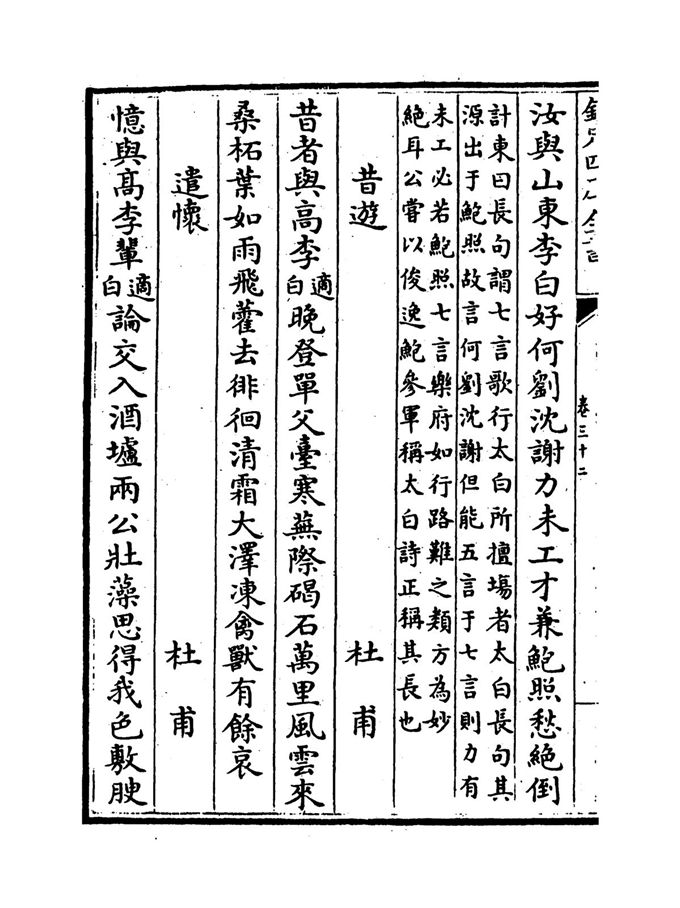 欽定四庫全書
卷三十二
汝與山東李白好何劉沈謝力未工才兼鮑照愁絕倒
計東曰長句謂七言歌行太白所擅塲者太白長句其
源出于鮑照故言何劉沈謝但能五言于七言則力有
未工必若鮑照七言樂府如行路難之類方為妙
絕耳公嘗以俊逸鮑參軍稱太白詩正稱其長也
昔遊 杜甫
昔者與高李適白晚登單父臺寒蕪際碣石萬里風雲來
桑柘葉如雨飛藿去徘徊清霜大澤凍禽獸有餘哀
遣懷 杜甫
憶與高李輩適白論交入酒壚兩公壯藻思得我色敷腴